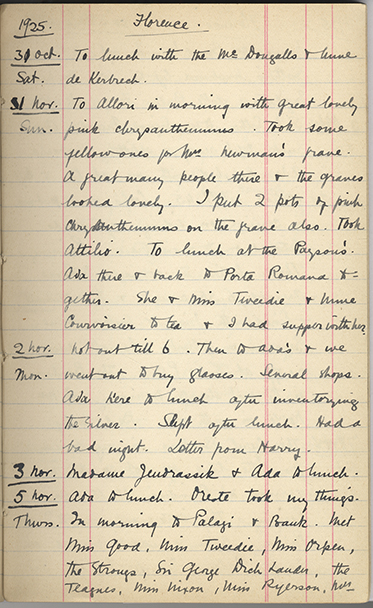 1925. Florence.
31 Oct. To lunch with the McDougalls & Mme
Sat. de Kerbrech.
1 Nov. To Allori in morning with great lovely
Sun. pink chrysanthemums. Took some
yellow ones for Mrs Newman's grave.
A great many people there & the graves
looked lovely. I put 2 pots of pink
chrysanthemums on the grave also. Took
Attilio. To lunch at the Payson's.
Ada there & back to Porta Romana to-
gether. She & Miss Tweedie & Mme
Courvoisier to tea & I had supper with her.
2 Nov. Not out till 6. Then to Ada's & we
Mon. went out to buy glasses. Several shops.
Ada here to lunch after inventorying
the silver. Slept after lunch. Had a
bad night. Letter from Harry.
3 Nov. Madame Jendrassik & Ada to lunch.
5 Nov. Ada to lunch. Oreste took my things.
Thurs. In morning to Palazi & Bank. Met
Miss Good, Miss Tweedie, Miss Orpen,
the Strongs, Sir George Dick Lauder, the
Miss Nixon, Miss Ryerson, Mrs